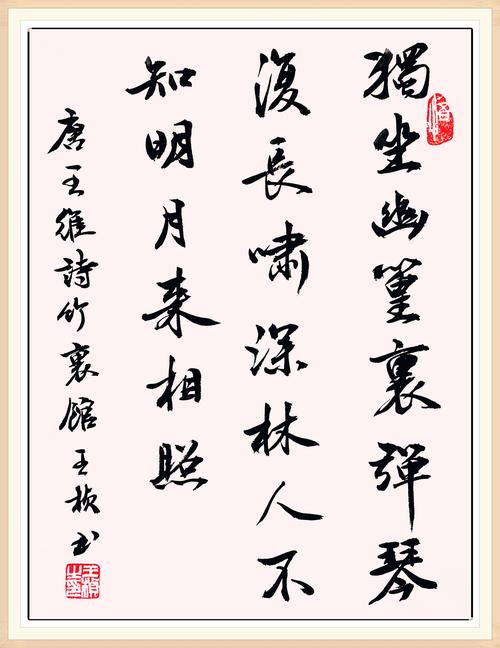 獨坐幽篁裏彈琴
復長嘯深林人不
知明月来相照
唐王維詩竹裏館 王楨书